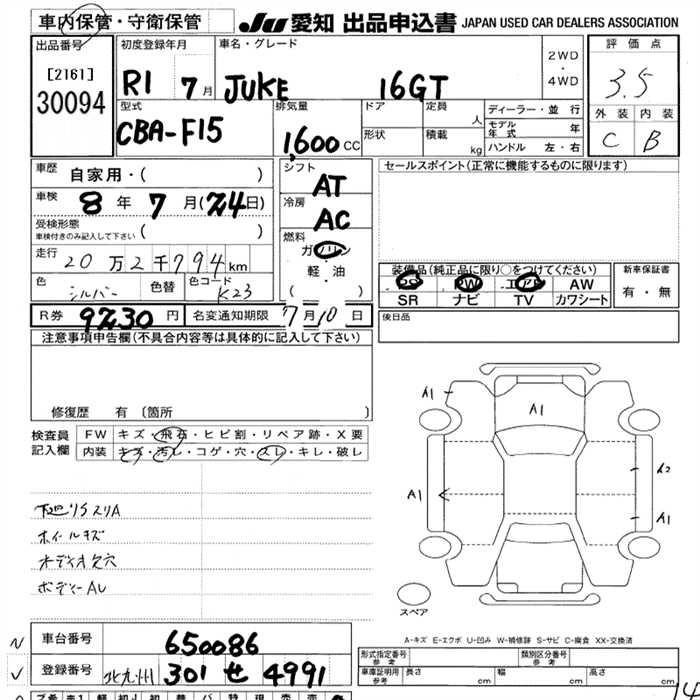 車内保管・守衛保管
JU 愛知 出品申込書 JAPAN USED CAR DEALERS ASSOCIATION
出品番号
[2161]
30094
初度登録年月
R1 7月
車名・グレード
JUKE 16GT
2WD
・
4WD
評価点
3.5
外装 内装
C B
型式
CBA-F15
排気量
1,600 CC
ドア
定員 人
形状
積載 kg
ディーラー・並行
モデル年式 年
ハンドル 左・右
車歴
自家用・( )
車検 8年 7月(24日)
受検形態
車検付きのみ記入して下さい ( )
走行
20万2千794km
色 シルバー 色替 色コード K23
シフト AT
冷房 AC
燃料
ガソリン
・
軽・油
( )
セールスポイント(正常に機能するものに限ります)
装備品(純正品に限り○をつけてください)
PS PW エアB AW
SR ナビ TV カワシート
新車保証書
有・無
R券 9230円 名変通知期限 7月10日
後日品
注意事項申告欄(不具合内容等は具体的に記入して下さい)
修復歴 有(箇所 )
検査員記入欄
FW キズ・飛石・ヒビ割・リペア跡・X要
内装 キズ・汚レ・コゲ・穴・スレ・キレ・破レ
下廻りSスリA
ホイールキズ
オーディオ欠穴
ボディーAU
A1
A1
A1
A2
A1
スペア
A-キズ E-エクボ U-凹み W-補修跡 S-サビ C-腐食 XX-交換済
車台番号 650086
登録番号 北九州 301 せ 4991
形式指定番号
参考
類別区分番号
参考
車庫証明用
参考
長さ cm 幅 cm 高さ cm